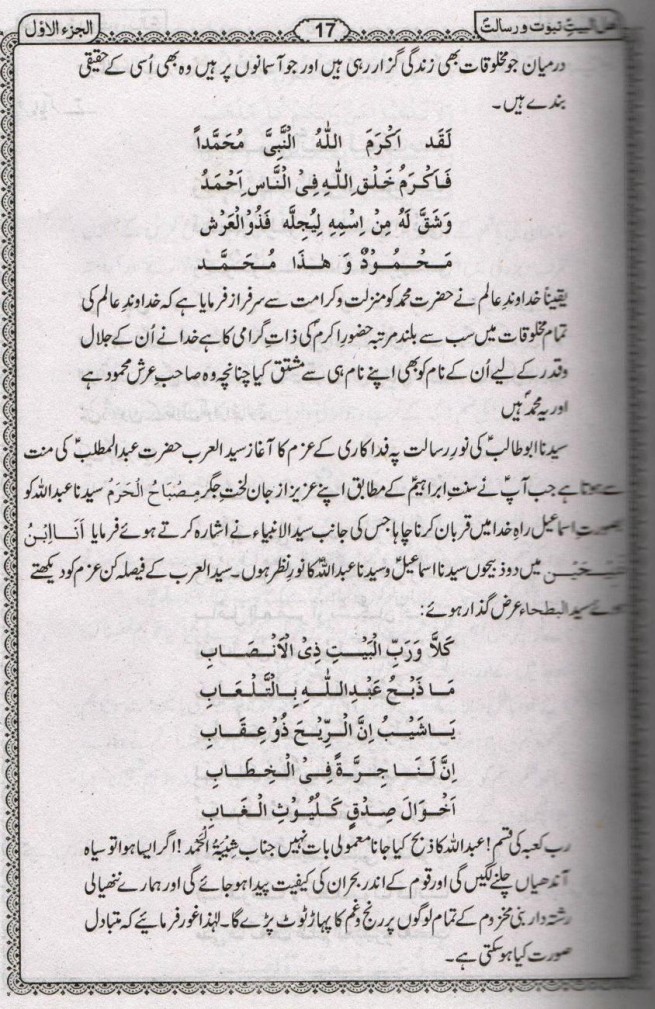 اھل البیتِ نبوت و رسالتؐ
17
الجزء الاوّل
درمیان جو مخلوقات بھی زندگی گزار رہی ہیں اور جو آسمانوں پر ہیں وہ بھی اُسی کے حقیقی
بندے ہیں۔
لَقَد اَکْرَمَ اللّٰہُ الْنَّبِیَّ مُحَمَّداً
فَاَکْرَمُ خَلْقِ اللّٰہِ فِیْ الْنَّاسِ اَحْمَدُ
وَشَقَّ لَهُ مِنْ اِسْمِهٖ لِیُجِلَّه فَذُوْالْعَرْش
مَحْمُوْدٌ وَ هٰذَا مُحَمَّد
یقیناً خداوندِ عالم نے حضرت محمدؐ کو منزلت و کرامت سے سرفراز فرمایا ہے کہ خداوندِ عالم کی
تمام مخلوقات میں سب سے بلند مرتبہ حضورِ اکرمؐ کی ذاتِ گرامی کا ہے خدا نے اُن کے جلال
و قدر کے لیے اُن کے نام کو بھی اپنے نام ہی سے مشتق کیا چنانچہ وہ صاحبِ عرش محمود ہے
اور یہ محمدؐ ہیں
سیدنا ابو طالبؑ کی نورِ رسالت پہ فداکاری کے عزم کا آغاز سید العرب حضرت عبدالمطلبؑ کی منت
سے ہوتا ہے جب آپؑ نے سنتِ ابراہیمؑ کے مطابق اپنے عزیز از جان لختِ جگر مِصْبَاحُ الْحَرَمُ سیدنا عبداللہ کو
بصورتِ اسماعیل راہِ خدا میں قربان کرنا چاہا جس کی جانب سید الانبیاء نے اشارہ کرتے ہوئے فرمایا اَنَااِبْنُ
میں دو ذبیحوں سیدنا اسماعیلؑ و سیدنا عبداللہؑ کا نورِ نظر ہوں۔ سید العرب کے فیصلہ کن عزم کو دیکھتے
ہوئے سید البطحاء عرض گذار ہوئے:
کَلَّا وَرَبِّ الْبَیْتِ ذِیْ الْاَنْصَابِ
مَا ذَبْحُ عَبْدِاللّٰہِ بِالتَّلْعَابِ
یَاشَیْبُ اِنَّ الْرِّیْحَ ذُوْ عِقَابِ
اِنَّ لَنَا جِرَّةً فِیْ الْخِطَابِ
اَخْوَالَ صِدْقٍ کَلُیُوْثِ الْغَابِ
رب کعبہ کی قسم! عبداللہ کا ذبح کیا جانا معمولی بات نہیں جناب شِیْبَۃُ الْحَمْد! اگر ایسا ہوا تو سیاہ
آندھیاں چلنے لگیں گی اور قوم کے اندر بحران کی کیفیت پیدا ہو جائے گی اور ہمارے ننھیالی
رشتہ دار بنی مخزوم کے تمام لوگوں پر رنج و غم کا پہاڑ ٹوٹ پڑے گا۔ لہٰذا غور فرمائیے کہ متبادل
صورت کیا ہو سکتی ہے۔